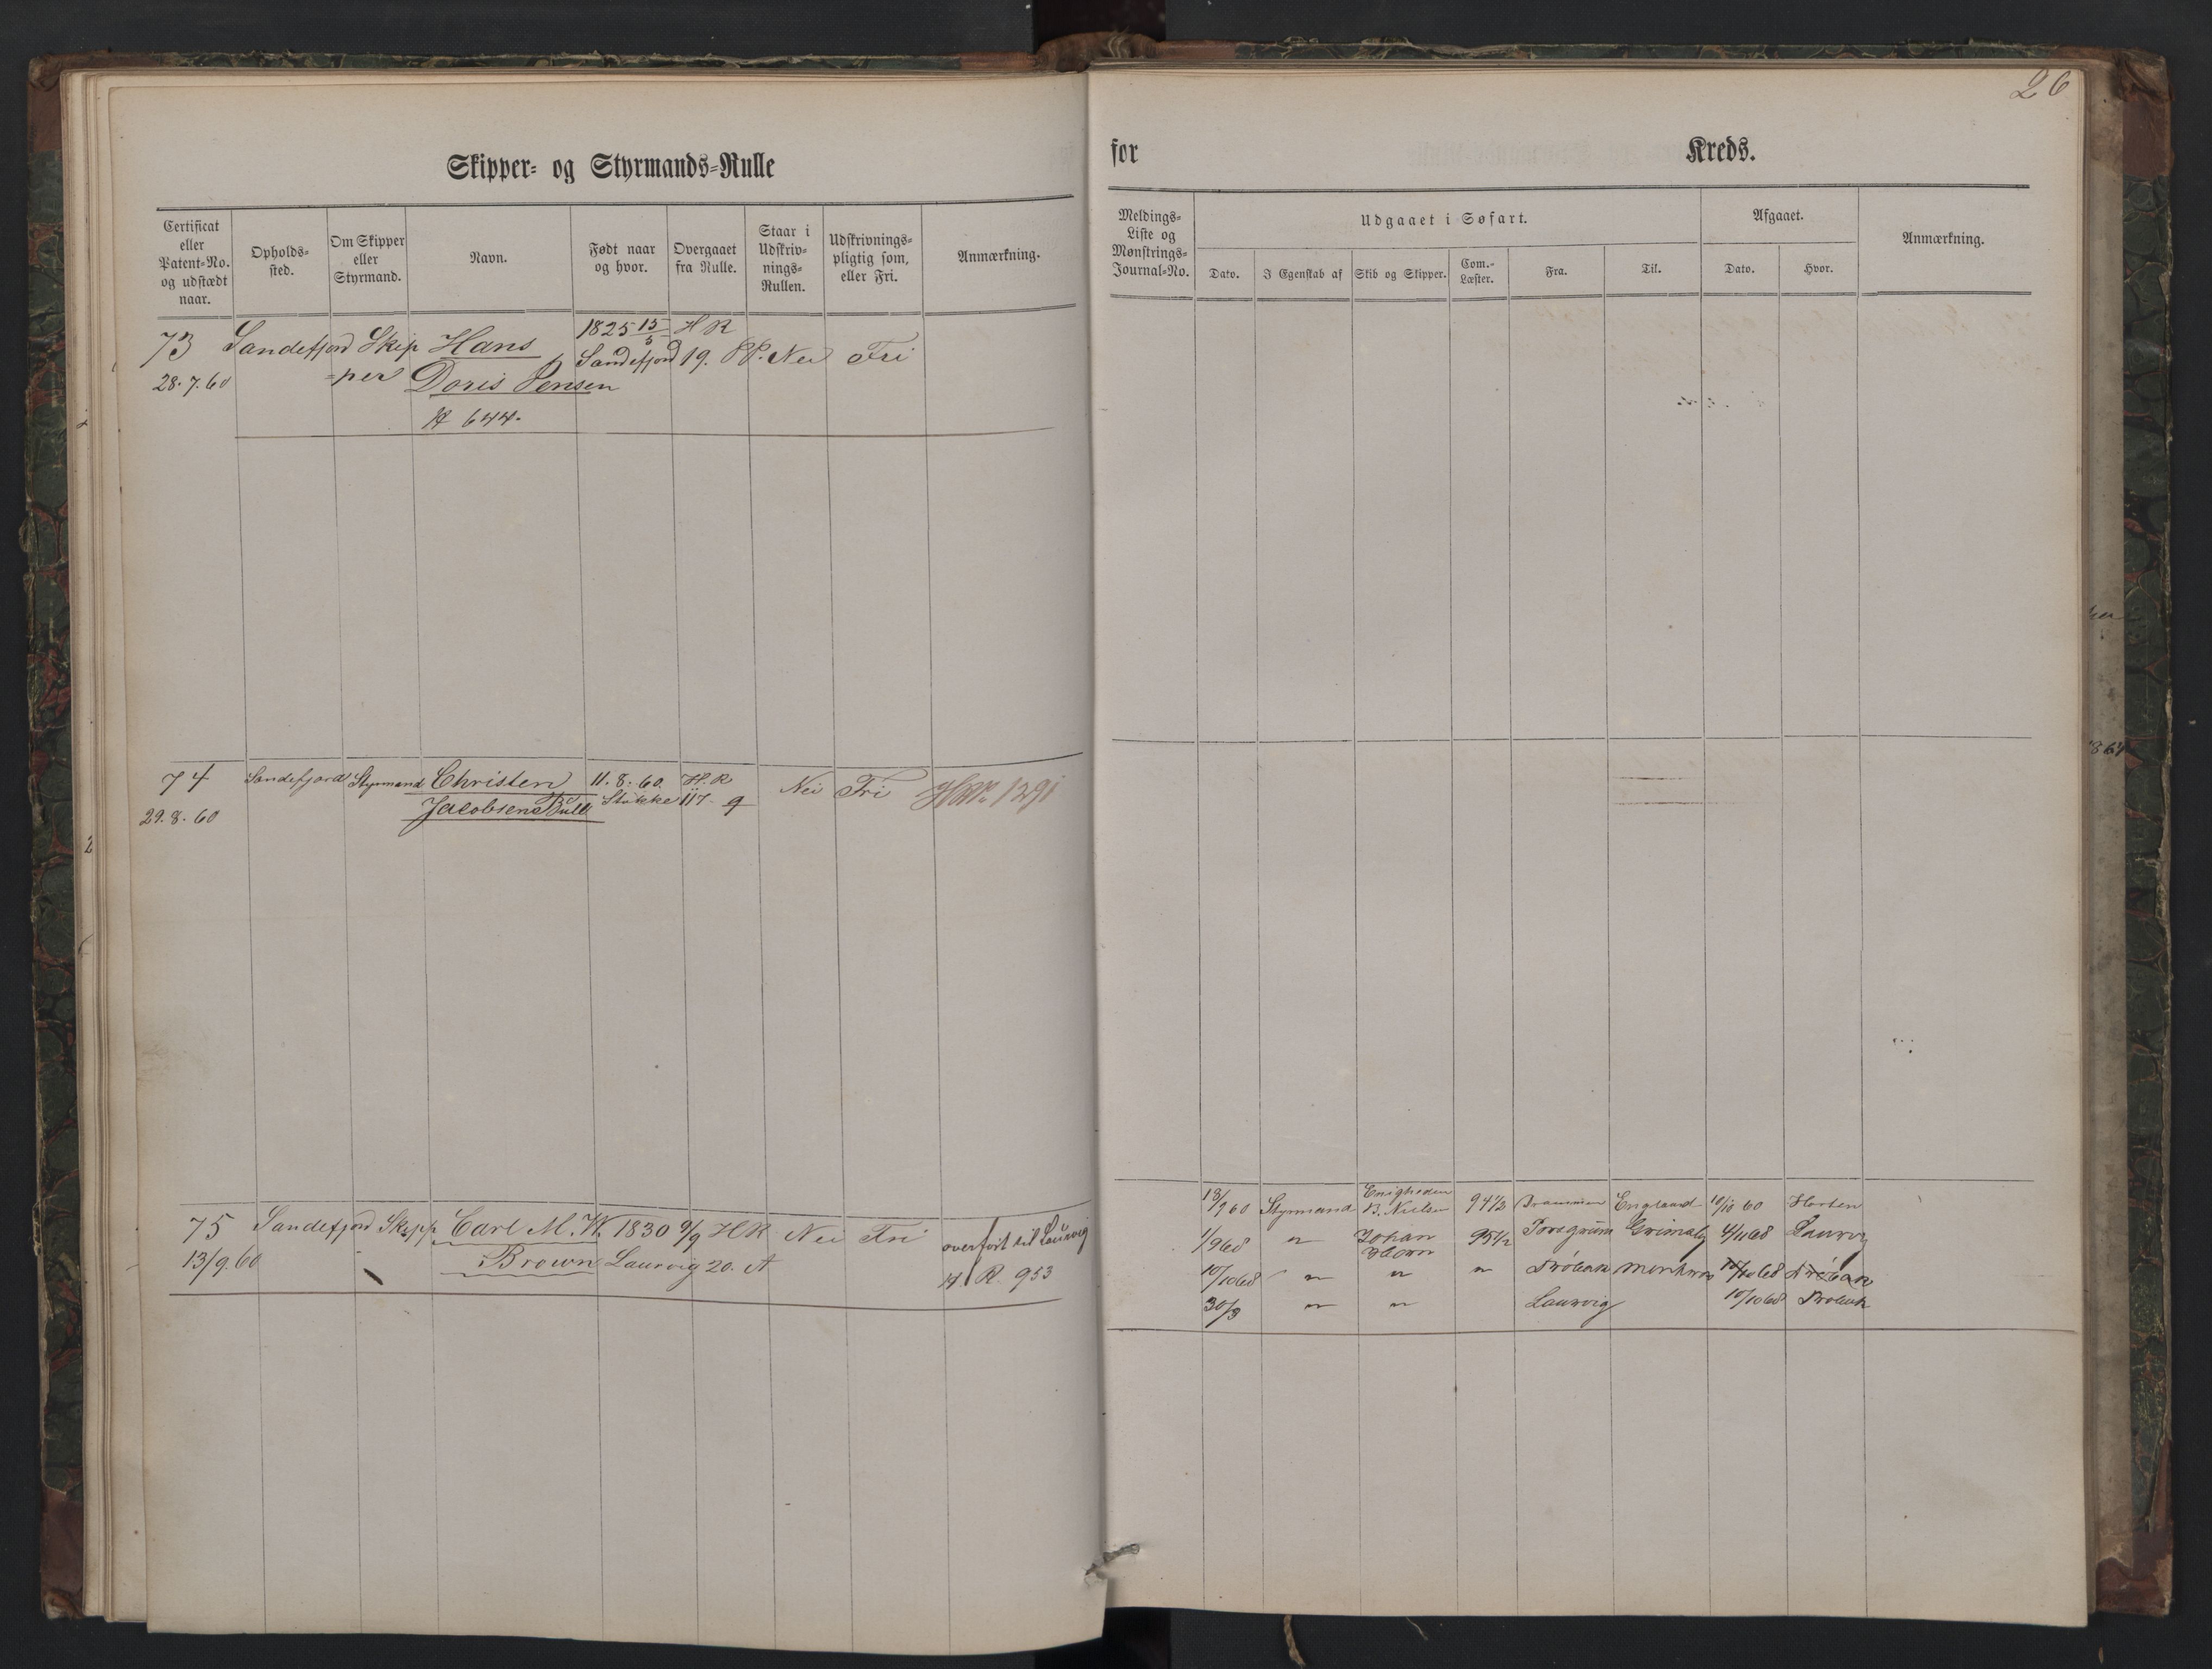 26
Skipper- og Styrmands-Rulle
for Kreds.
Certificat eller Patent-No. og udstædt naar.
Opholds-sted.
Om Skipper eller Styrmand.
Navn.
Født naar og hvor.
Overgaaet fra Rulle.
Staar i Udskriv-nings-Rullen.
Udskrivnings-pligtig som, eller Fri.
Anmærkning.
Meldings-Liste og Mønstrings-Journal-No.
Udgaaet i Søfart.
Dato.
I Egenskab af
Skib og Skipper.
Com.-Læster.
Fra.
Til.
Afgaaet.
Dato.
Hvor.
Anmærkning.
73 Sandefjord Skip Hans 1825 15/5 H R
28.7.60 -per Doris Jensen Sandefjord 19. Nei Fri
644.
74 Sandefjord Styrmand Christen 11.8.60. H.R Nei Fri 1291
29.8.60 Jacobsen Stokke 117. 9
75 Sandefjord Skipp Carl M. W. 1830 9/9 H R Nei Fri overført til Laurvig
13/9.60 Brown Laurvig 20. A R 953
18/9 60 Styrmand Enigheden B. Nielsen 94½ Drammen England 10/10 60 Horten
1/9 68 " Johan 95½ Porsgrunn Grimsby 4/11 68 Laurvig
10/10 68 " " " Drøbak 10/10 68 Drøbak
30/8 " " Laurvig 10/10 68 Drøbak